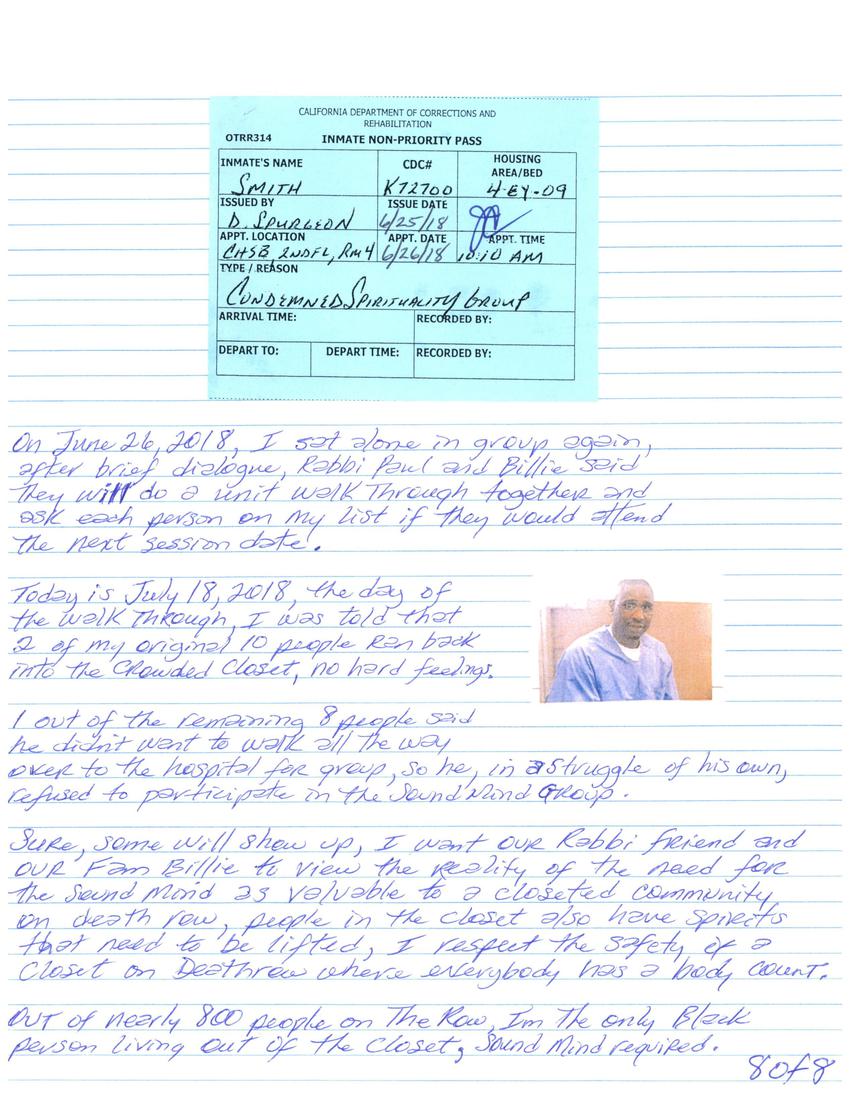 CALIFORNIA DEPARTMENT OF CORRECTIONS AND
REHABILITATION
OTRR314 INMATE NON-PRIORITY PASS
INMATE'S NAME CDC# HOUSING AREA/BED
SMITH K72700 4-EY-09
ISSUED BY ISSUE DATE
D. SPURGEON 6/25/18
APPT. LOCATION APPT. DATE APPT. TIME
CHSB 2NDFL, RM4 6/26/18 10:10 AM
TYPE / REASON
CONDEMNED SPIRITUALITY GROUP
ARRIVAL TIME: RECORDED BY:
DEPART TO: DEPART TIME: RECORDED BY:
On June 26, 2018, I sat alone in group again,
after brief dialogue, Rabbi Paul and Billie said
they will do a unit walk Through together and
ask each person on my list if they would attend
the next session date.
Today is July 18, 2018, the day of
the walk Through, I was told that
2 of my original 10 people Ran back
into the Crowded Closet, no hard feelings.
1 out of the remaining 8 people said
he didn't want to walk all the way
over to the hospital for group, so he, in a struggle of his own,
refused to participate in the Sound Mind Group.
Sure, some will show up, I want our Rabbi friend and
our Fam Billie to view the reality of the need for
the Sound Mind as valuable to a closeted community
on death row, people in the closet also have spirits
that need to be lifted, I respect the safety of a
Closet on Deathrow where everybody has a body count.
Out of nearly 800 people on The Row, Im the only Black
person living out of the Closet, Sound Mind required.
8 of 8